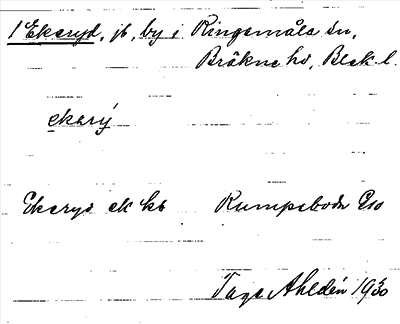 1 Ekeryd, jb, by i Ringamåla sn,
Bräkne hd, Blek. l.
ekerý
Ekeryd ek kb Rumpeboda
Tage Ahldén 1930